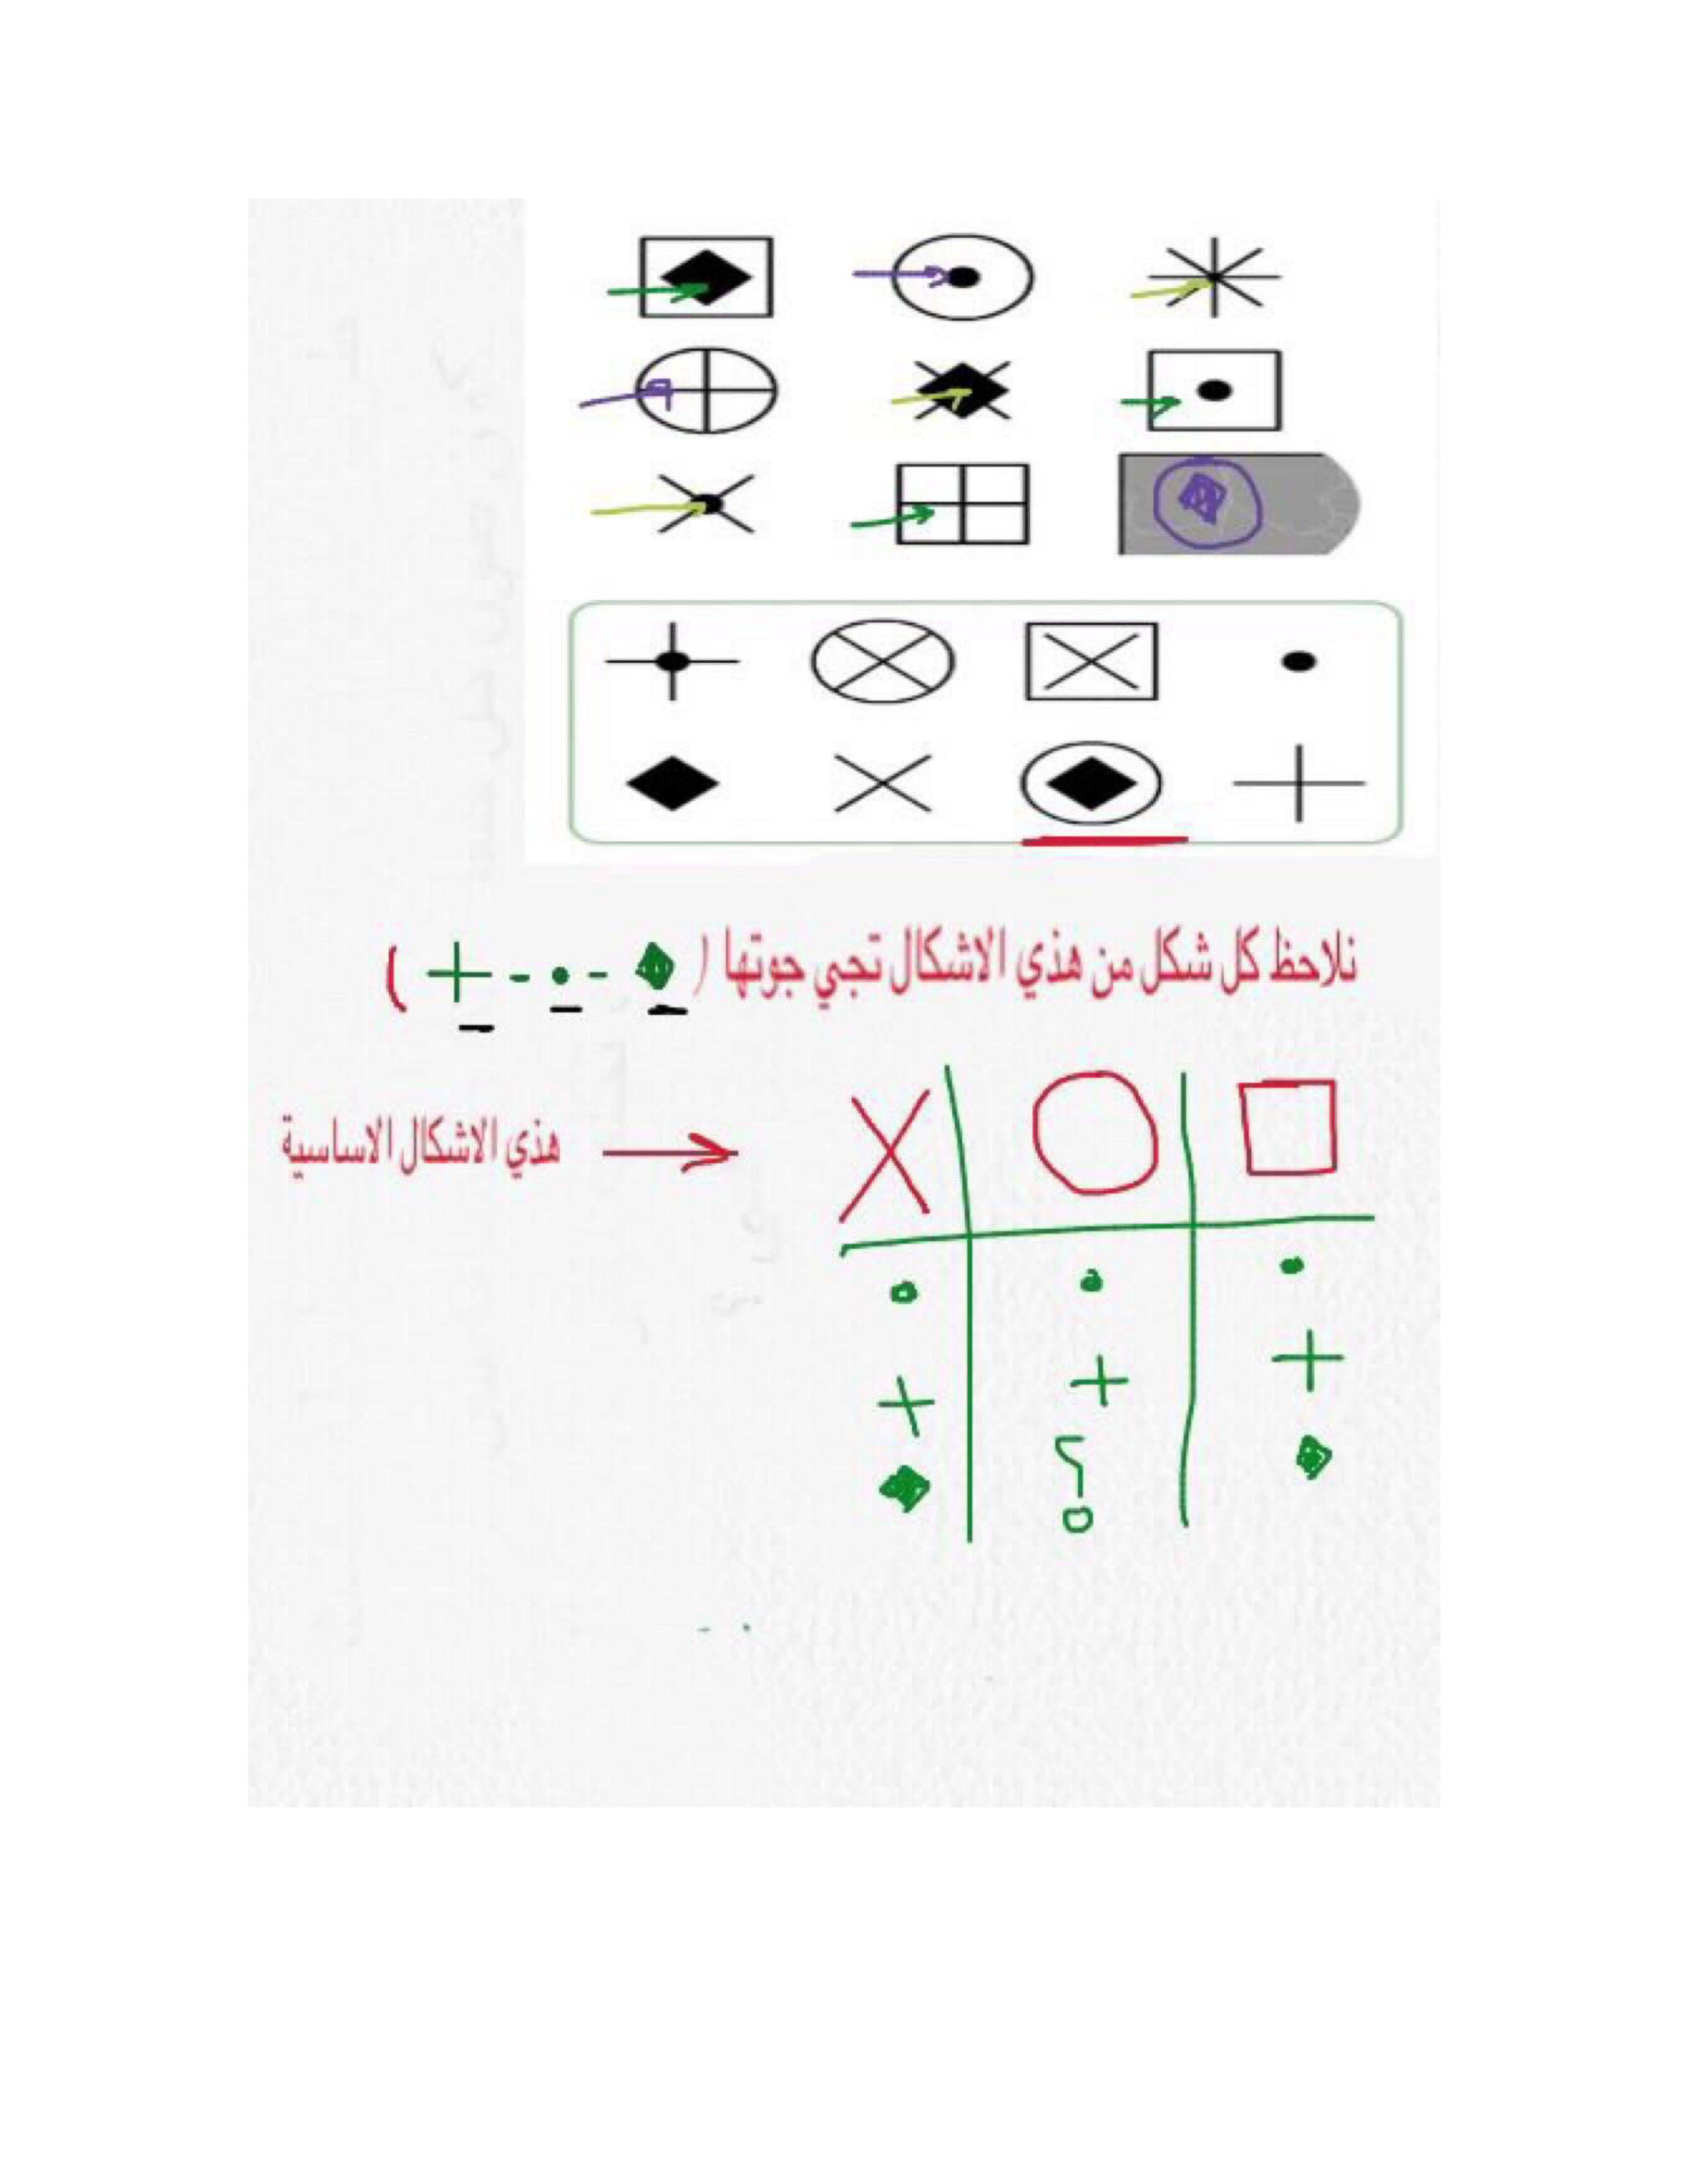 نلاحظ كل شكل من هذي الاشكال تجي جوتها ( ◆ - • - + )
هذي الاشكال الاساسية
؟